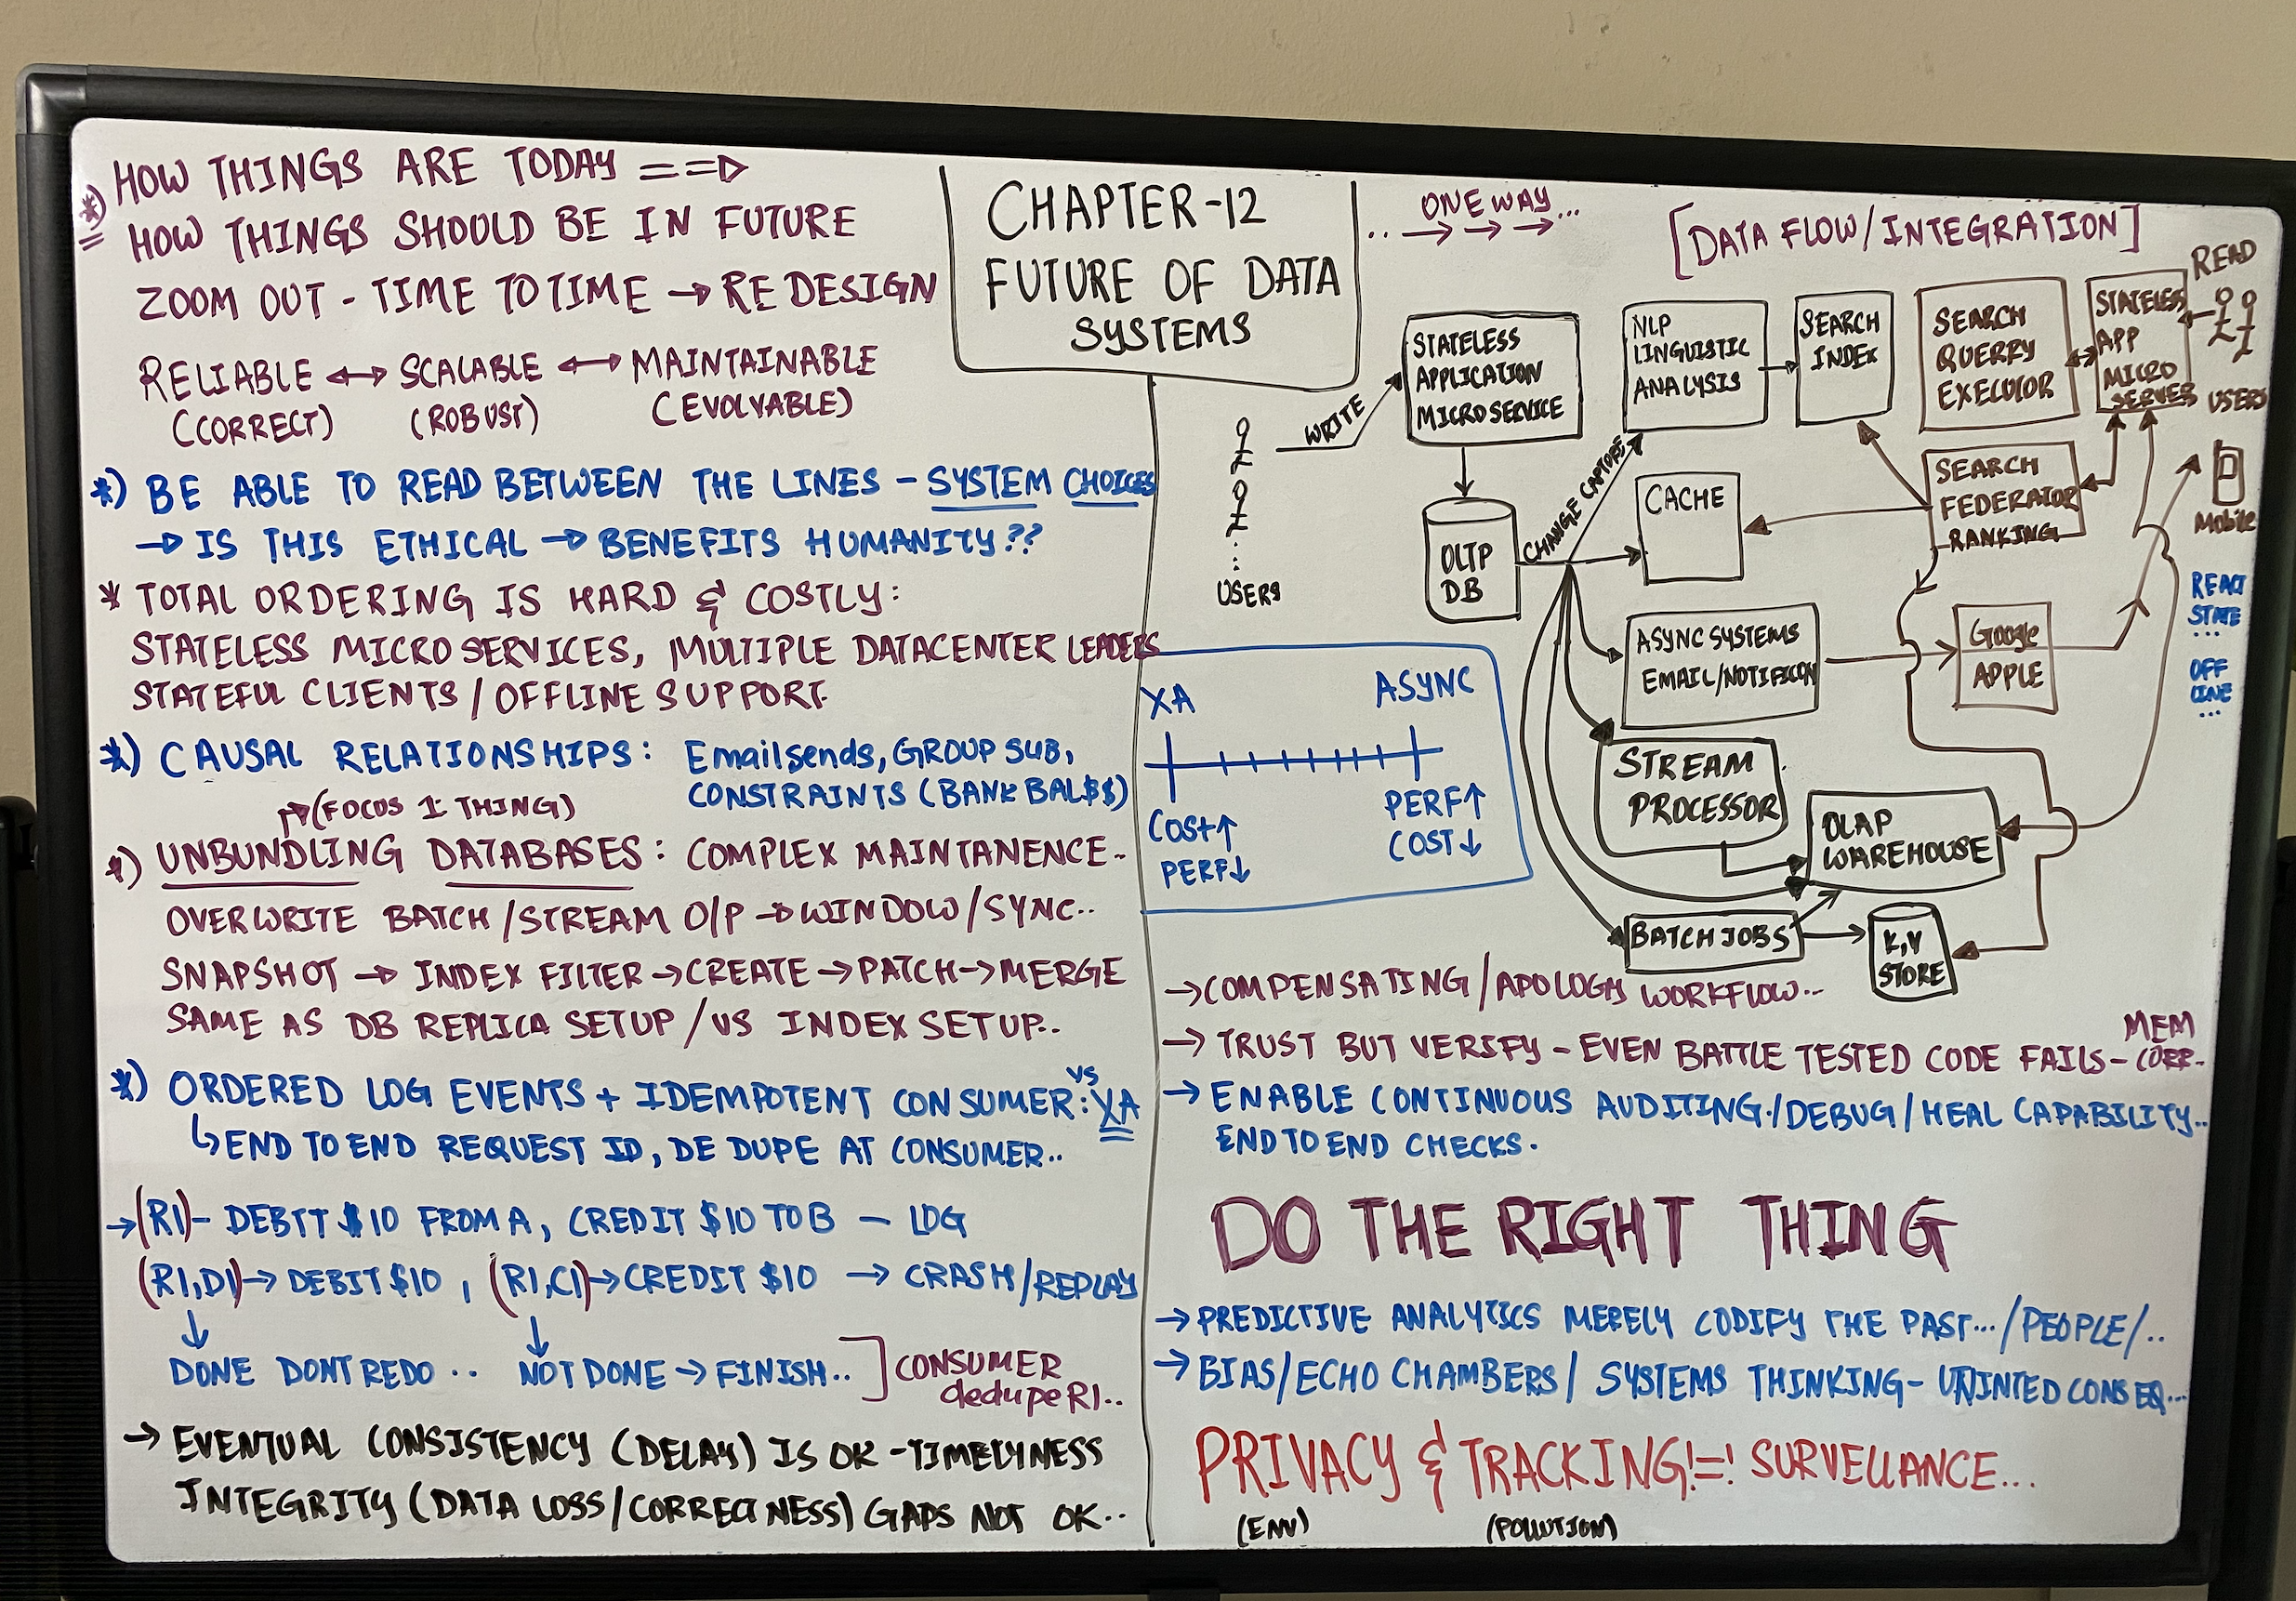 CHAPTER-12
FUTURE OF DATA
SYSTEMS
*) HOW THINGS ARE TODAY ==▷
HOW THINGS SHOULD BE IN FUTURE
ZOOM OUT - TIME TO TIME → RE DESIGN
RELIABLE ↔ SCALABLE ↔ MAINTAINABLE
(CORRECT) (ROBUST) (EVOLVABLE)
*) BE ABLE TO READ BETWEEN THE LINES - SYSTEM CHOICES
→ IS THIS ETHICAL → BENEFITS HUMANITY??
* TOTAL ORDERING IS HARD & COSTLY:
STATELESS MICRO SERVICES, MULTIPLE DATACENTER LEADERS
STATEFUL CLIENTS / OFFLINE SUPPORT
*) CAUSAL RELATIONSHIPS: Email sends, GROUP SUB,
CONSTRAINTS (BANK BAL$$)
(FOCUS 1 THING)
*) UNBUNDLING DATABASES: COMPLEX MAINTANENCE-
OVERWRITE BATCH/STREAM O/P → WINDOW/SYNC..
SNAPSHOT → INDEX FILTER → CREATE → PATCH → MERGE
SAME AS DB REPLICA SETUP / VS INDEX SETUP..
*) ORDERED LOG EVENTS + IDEMPOTENT CONSUMER: VS XA
↳ END TO END REQUEST ID, DE DUPE AT CONSUMER..
→ (R1)- DEBIT $10 FROM A, CREDIT $10 TO B - LOG
(R1,D1) → DEBIT $10, (R1,C1) → CREDIT $10 → CRASH/REPLAY
↓ ↓
DONE DONT REDO .. NOT DONE → FINISH.. ] CONSUMER
dedupe R1..
→ EVENTUAL CONSISTENCY (DELAY) IS OK - TIMELYNESS
INTEGRITY (DATA LOSS/CORRECTNESS) GAPS NOT OK..
.. → → → ONE WAY...
[DATA FLOW/INTEGRATION]
USERS
WRITE
STATELESS
APPLICATION
MICROSERVICE
OLTP
DB
CHANGE CAPTURE
NLP
LINGUISTIC
ANALYSIS
SEARCH
INDEX
SEARCH
QUERRY
EXECUTOR
STATELESS
APP
MICRO
SERVER
READ
USERS
CACHE
SEARCH
FEDERATOR
RANKING
Mobile
REACT
STATE
...
OFF
LINE
...
ASYNC SYSTEMS
EMAIL/NOTIFICON
Google
APPLE
STREAM
PROCESSOR
OLAP
WAREHOUSE
BATCH JOBS
K,V
STORE
XA ASYNC
COST↑ PERF↑
PERF↓ COST↓
→ COMPENSATING/APOLOGY WORKFLOW..
→ TRUST BUT VERIFY - EVEN BATTLE TESTED CODE FAILS - MEM CORR-
→ ENABLE CONTINUOUS AUDITING/DEBUG/HEAL CAPABILITY..
END TO END CHECKS.
DO THE RIGHT THING
→ PREDICTIVE ANALYTICS MERELY CODIFY THE PAST.../PEOPLE/..
→ BIAS/ECHO CHAMBERS/ SYSTEMS THINKING - UNINTED CONSEQ...
PRIVACY & TRACKING!=! SURVEILLANCE...
(ENV) (POLLUTION)